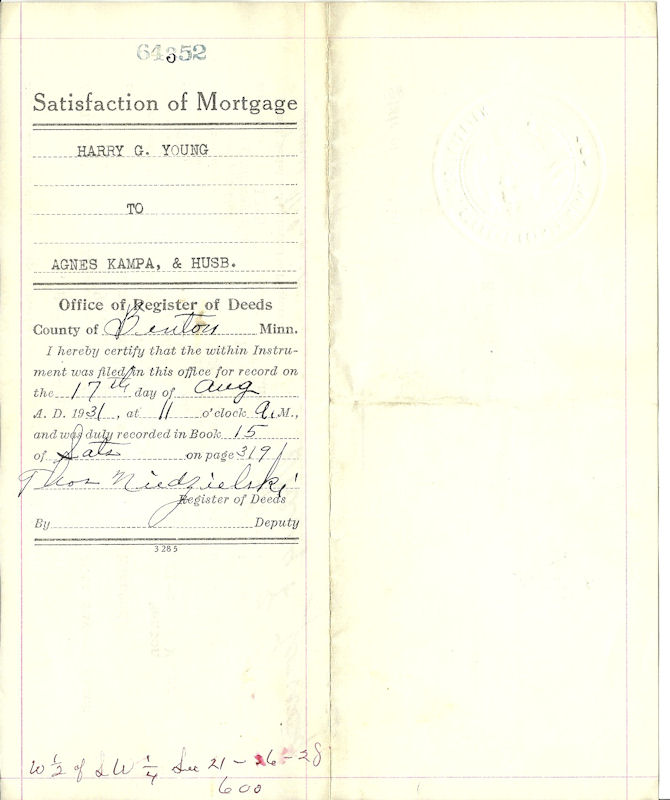 64352
Satisfaction of Mortgage
HARRY G. YOUNG
TO
AGNES KAMPA, & HUSB.
Office of Register of Deeds
County of Benton Minn.
I hereby certify that the within Instru-
ment was filed in this office for record on
the 17th day of Aug
A. D. 1931, at 11 o'clock A.M.,
and was duly recorded in Book 15
of Sats on page 319
Thos Niedzielski
Register of Deeds
By Deputy
3285
W 1/2 of S W 1/4 Sec 21-36-28
600